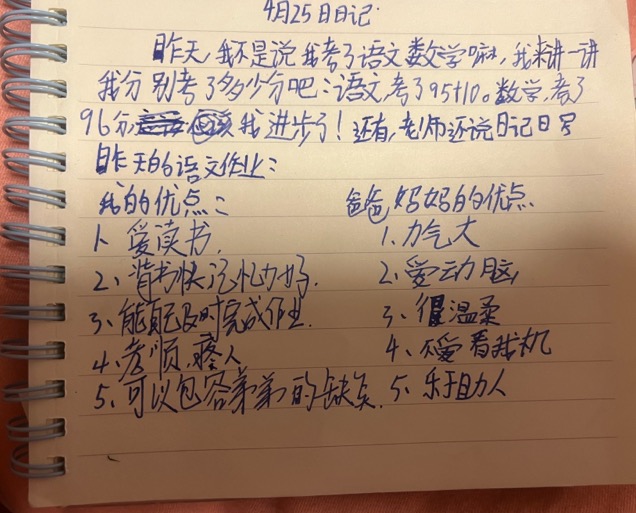 4月25日日记.
昨天,我不是说我考了语文数学嘛,我来讲一讲
我分别考了多少分吧:语文,考了95+10。数学,考了
96分 我进步了!还有,老师还说日记日写
昨天的语文作业:
我的优点: 爸爸妈妈的优点.
1、爱读书. 1.力气大
2、背书快记忆力好. 2.爱动脑
3、能自己及时完成作业. 3、很温柔
4、孝顺,疼人 4、不爱看我机
5、可以包容弟弟的缺点. 5.乐于助人